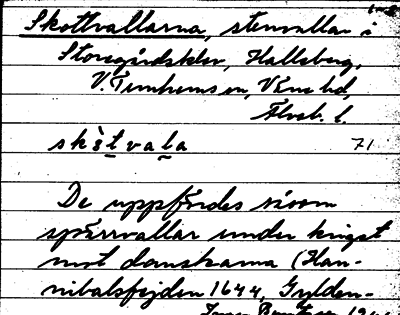 Skottvallarna, stenvallar i
Storegårdsklev, Halleberg,
V. Tunhems sn, Väne hd,
Älvsb. l.
skòtvala 71
De uppfördes såsom
spärrvallar under kriget
mot danskarna (Han-
nibalsfejden 1644, Gylden-